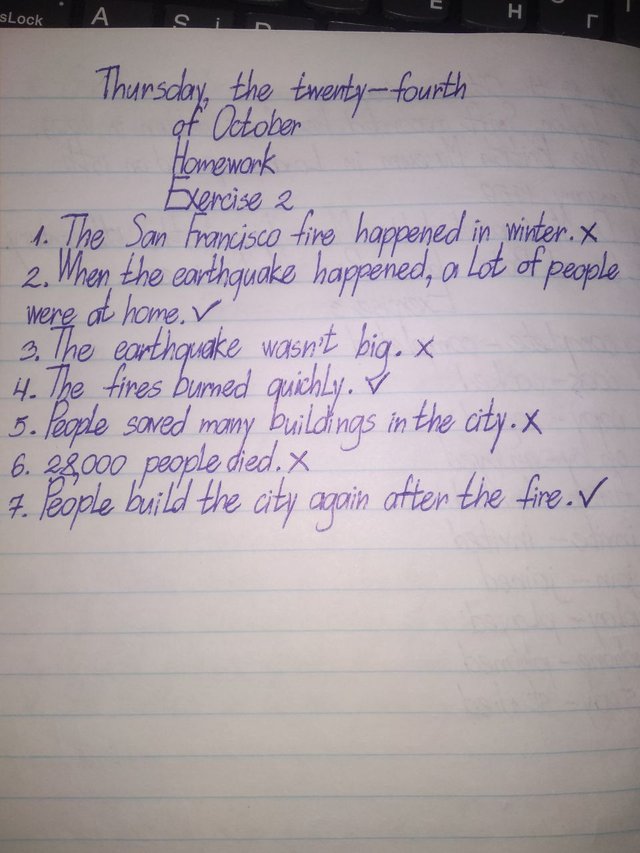 sLock
A
S
i
D
E
H
Г
Thursday, the twenty-fourth
of October
Homework
Exercise 2
1. The San Francisco fire happened in winter. x
2. When the earthquake happened, a lot of people
were at home. ✓
3. The earthquake wasn't big. x
4. The fires burned quichly. ✓
5. People saved many buildings in the city. x
6. 28,000 people died. x
7. People build the city again after the fire. ✓